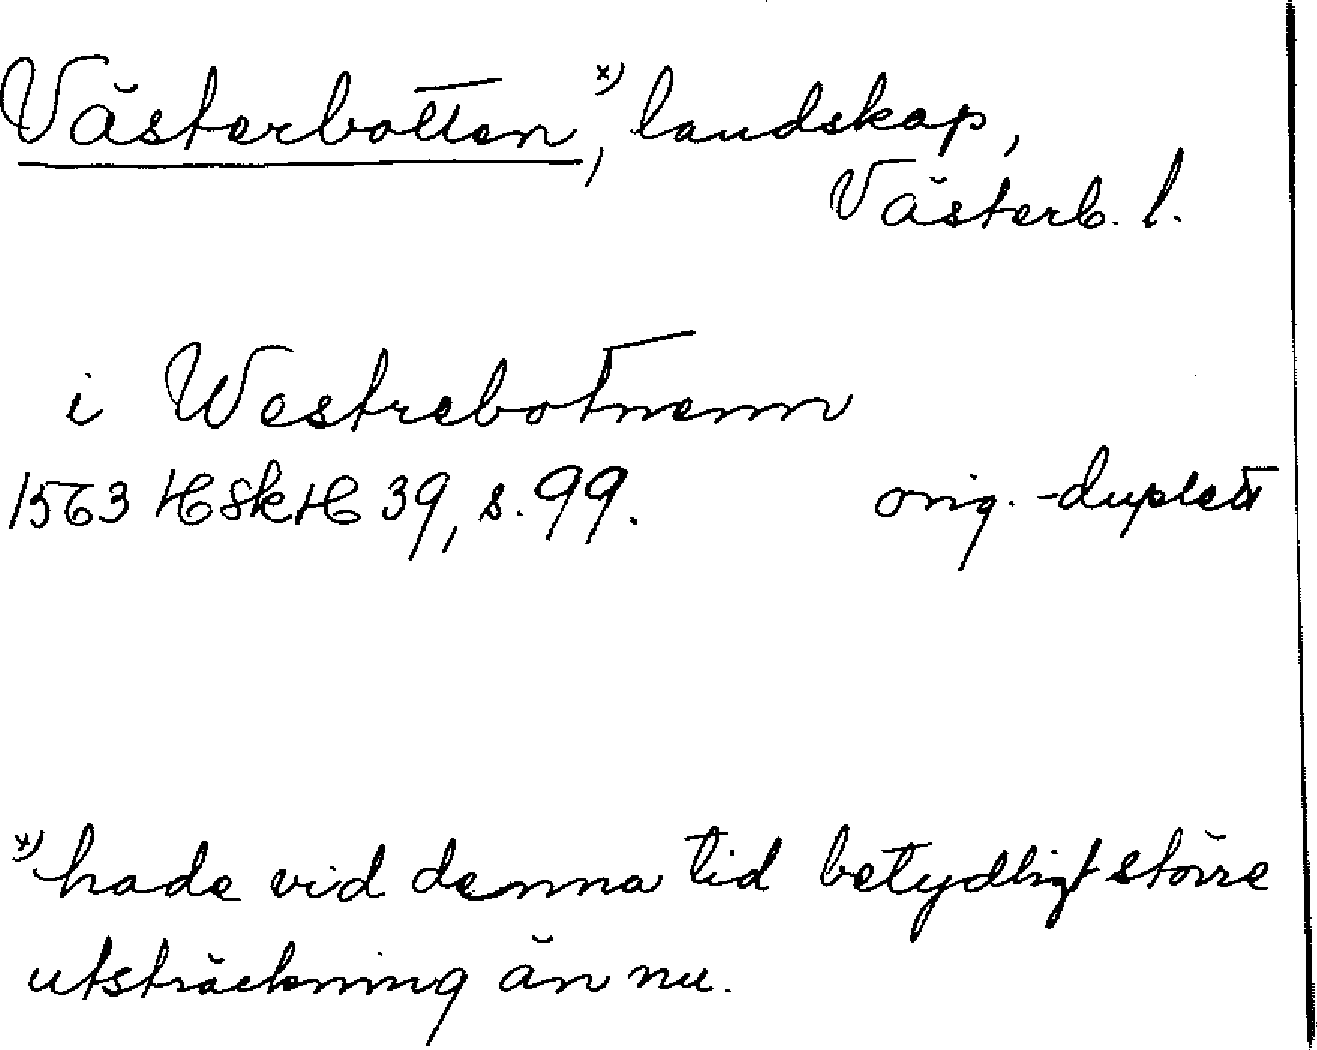 Västerbotten,ˣ⁾ landskap,
Västerb. l.
i Westrebotnenn
1563 HSkH 39, s. 99. orig.-duplett
ˣ⁾ hade vid denna tid betydligt större
utsträckning än nu.